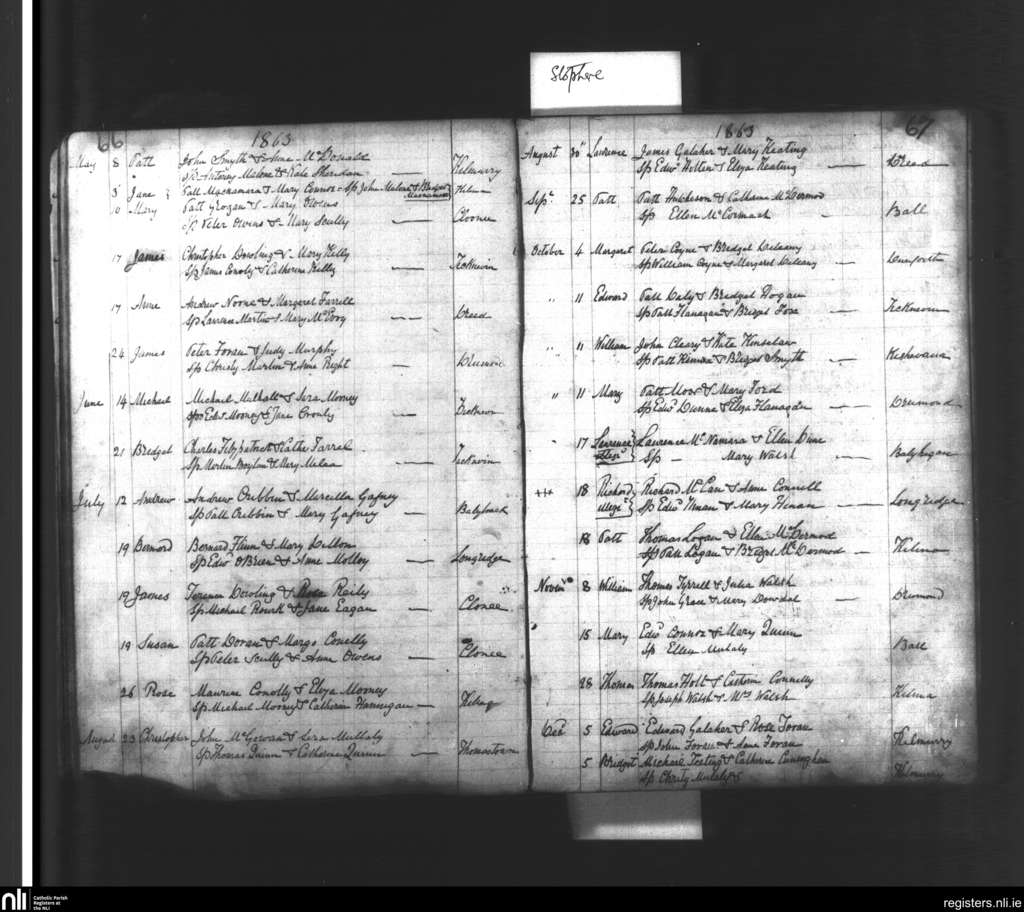 Stophere
66
1863
May 8 Patt John Smyth & Anne McDonald Kilmurry
Sp Antony Malone & Kate Sheridan
3 Jane Patt Macnamara & Mary Connor - Sp John Malone & Bridget Macnamara
10 Mary Patt Grogan & Mary Owens
Sp Peter Owens & Mary Scully Clonee
17 James Christopher Dowling & Mary Kelly
Sp James & Catherine Kelly Ticknevin
17 Anne Andrew Noone & Margaret Farrell
Sp Laurence Martin & Mary
24 James Peter Foran & Judy Murphy
Sp Christy Martin & Anne Right
June 14 Michael Michael Mulhall & Sera Mooney
Sps Edwd Mooney & Jane Cronly Ticknevin
21 Bridget Charles Fitzpatrick & Cathe Farrel
Sp Martin Boylan & Mary Ticknevin
July 12 Andrew Andrew Cribbin & Marcella Gafney
Sp Patt Cribbin & Mary Gafney
19 Bernard Bernard Flinn & Mary Dillon
Sp Edwd O'Brien & Anne Molloy Longridge
19 James Terence Dowling & Rose Reily
Sp Michael Rourk & Jane Eagan Clonee
19 Susan Patt Doran & Margt Conelly
Sp Peter Scully & Anne Owens Clonee
26 Rose Maurice Conolly & Eliza Mooney
Sp Michael Mooney & Catherin Hannigan
August 23 Christopher John McGowan & Sera Mullaly
Sp Thomas Quinn & Catherine Quinn Thomastown
67
1863
August 30th Lawrence James Galaher & Mary Keating
Sp Edwd Holten & Eliza Keating
Sept 25 Patt Patt Hutcheson & Catharine McDermod
Sp Ellen McCormack Ball
October 4 Margaret Peter Coyne & Bredget Delaany
Sp William Coyne & Margaret Delaany
" 11 Edward Patt Daly & Bredget Hogan
Sp Patt Flanagan & Bridget Foxe
" 11 William John Cleary & Kate Kinselaw
Sp Patt & Bridget Smyth
" 11 Mary Patt Moor & Mary Ford
Sp Edwd Dunne & Eliza Flanagan Drumond
17 Lawrence Lawrence McNamara & Ellen Dune
Illegt Sp - Mary Walsh
18 Richard Richard McCan & Anne Connell
Illege Sp Edwd & Mary Hinan Longridge
18 Patt Thomas Logan & Ellen McDermod
Sp Patt Logan & Bridget McDermod Kilina
Novmr 8 William Thomas Tyrrell & Julia Walsh
Sp John Grace & Mary Dowdal Drumond
15 Mary Edwd Connor & Mary Quinn
Sp Ellen Mulaly Ball
28 Thomas Thomas Holt & Catherin Connelly
Sp Joseph Walsh & Mrs Walsh Kilina
Decr 5 Edward Edward Galaher & Rose Foran
Sp John Foran & Anne Foran Kilmurry
5 Bridget Michael Keating & Catherine Cuningham
Sp Christy Mulaly Kilmurry
nli Catholic Parish Registers at the NLI
registers.nli.ie